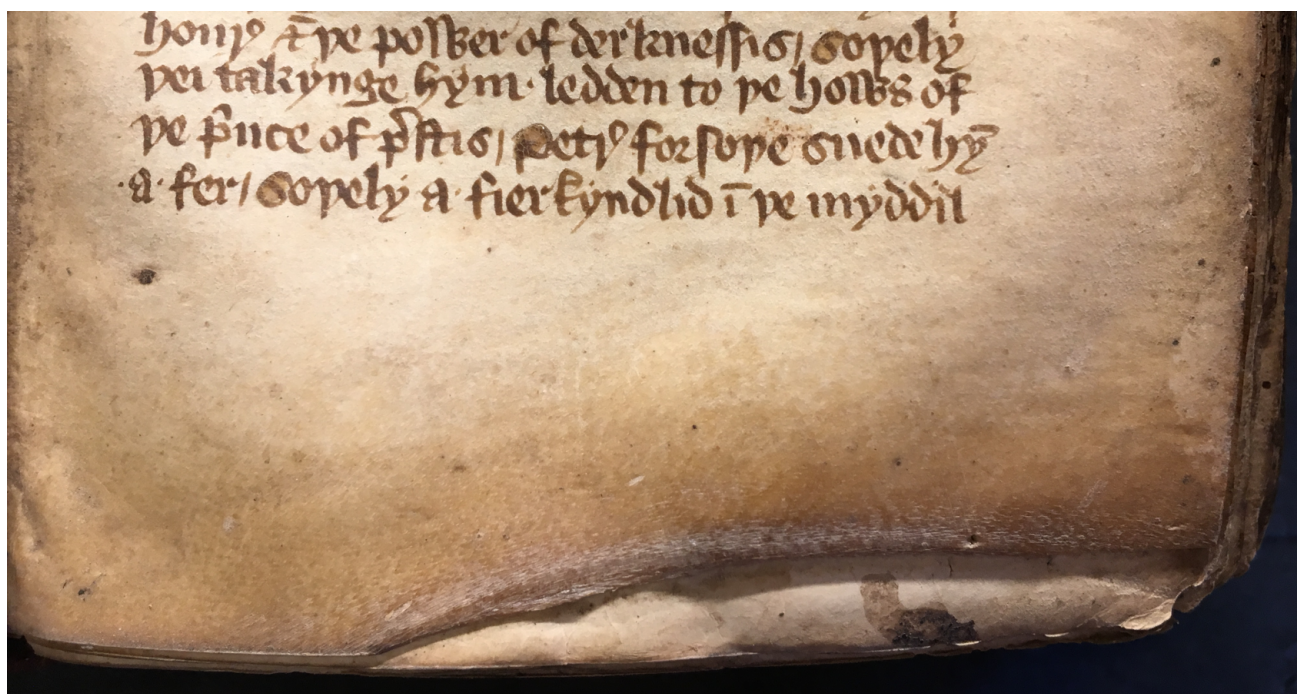 houꝛꝰ ⁊̄ þe power of derknessis/ Soþely
þei takynge hym· ledden to þe hows of
þe p̄nce of p̄stis/ Petꝛꝰ forsoþe suede hy̅
·a· fer/ Soþely a· fier kyndlid ī þe myddil